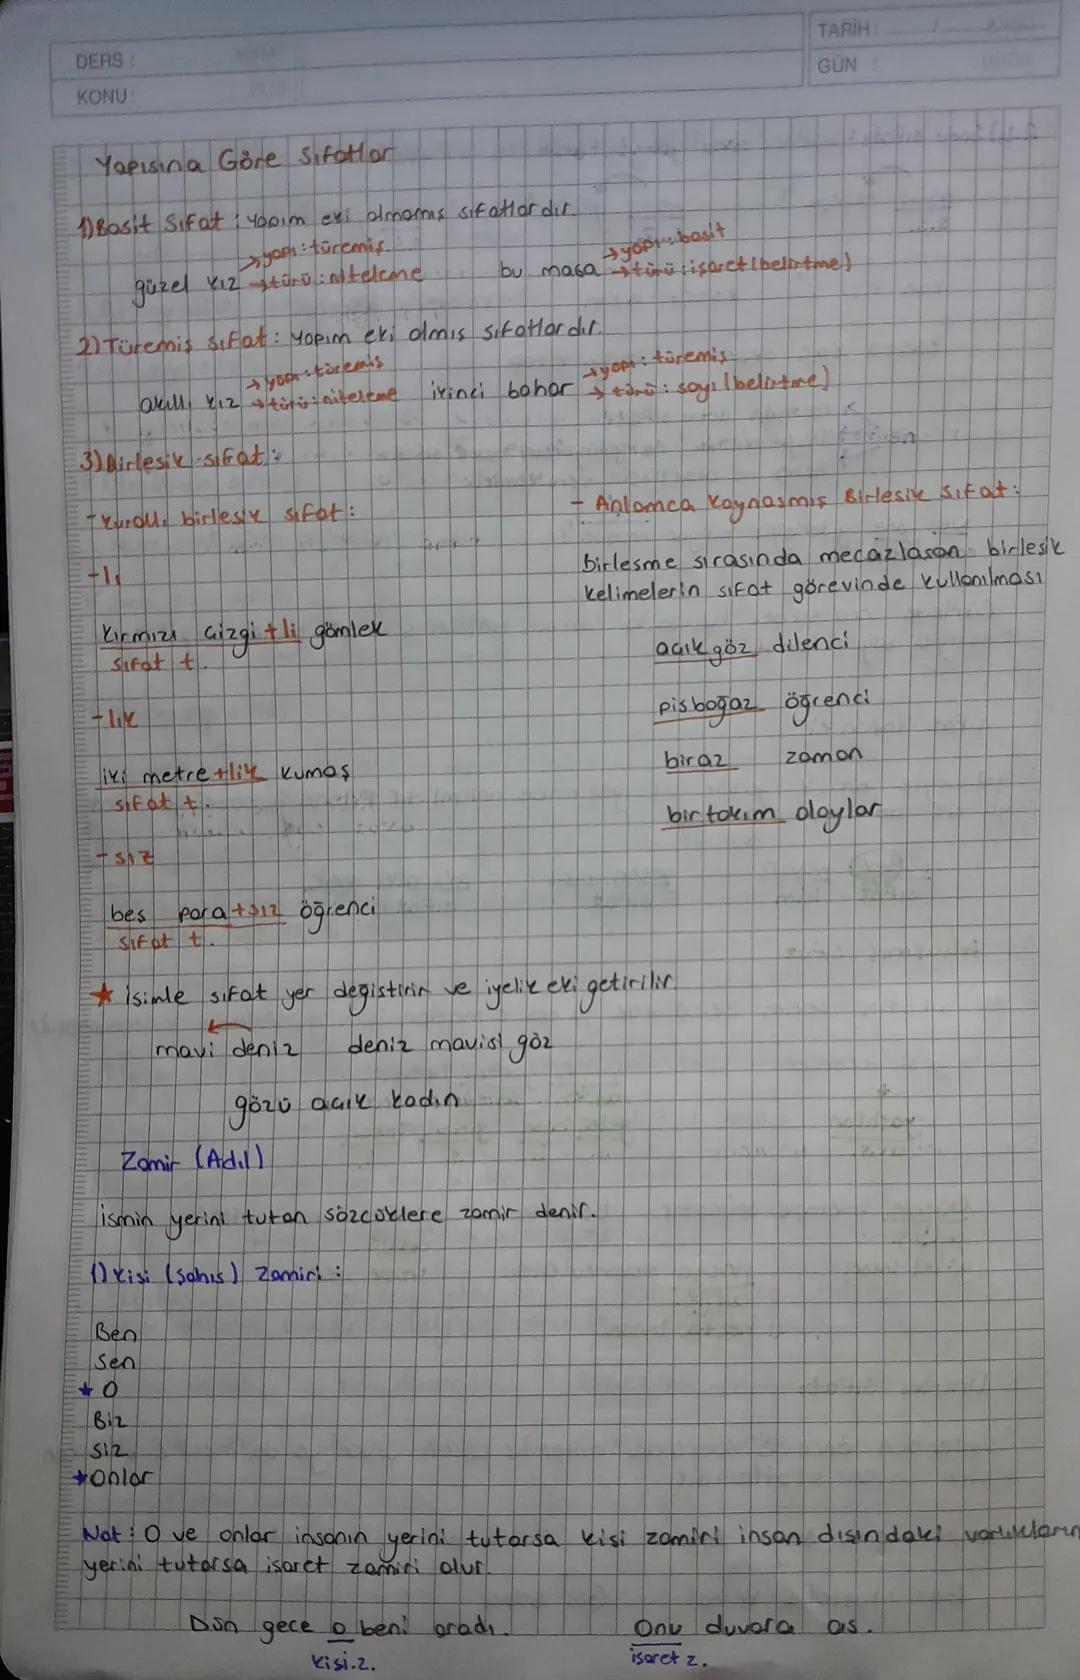 DERS :
KONU:
TARİH :
GÜN :
Yapısına Göre Sıfatlar
1) Basit Sıfat : yapım eki almamış sıfatlardır.
güzel kız → yapı : türemiş
→ türü : niteleme
bu masa → yapı : basit
→ türü : işaret (belirtme)
2) Türemiş sıfat : yapım eki almış sıfatlardır.
akıllı kız → yapı : türemiş
→ türü : niteleme
ikinci bahar → yapı : türemiş
→ türü : sayı (belirtme)
3) Birleşik sıfat :
- kurallı birleşik sıfat :
+lı
kırmızı çizgi+li gömlek
sıfat t.
+lık
iki metre+lik kumaş
sıfat t.
+sız
beş para+sız öğrenci
sıfat t.
- Anlamca Kaynaşmış Birleşik Sıfat :
birleşme sırasında mecazlaşan birleşik
kelimelerin sıfat görevinde kullanılması
açıkgöz dilenci
pisboğaz öğrenci
biraz zaman
birtakım olaylar
★ isimle sıfat yer değiştirir ve iyelik eki getirilir
mavi deniz deniz mavisi göz
gözü açık kadın
Zamir (Adıl)
İsmin yerini tutan sözcüklere zamir denir.
1) Kişi (şahıs) Zamiri :
Ben
Sen
★ O
Biz
Siz
★ Onlar
Not : O ve onlar insanın yerini tutarsa kişi zamiri insan dışındaki varlıkların
yerini tutarsa işaret zamiri olur.
Dün gece o beni aradı. Onu duvara as.
kişi.z. işaret z.